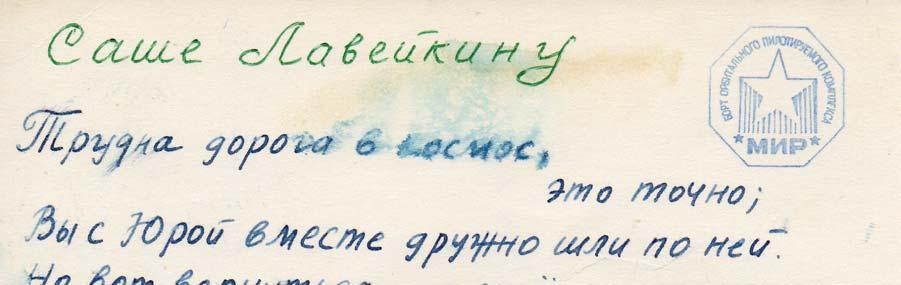 Саше Лавейкину
БОРТ ОРБИТАЛЬНОГО ПИЛОТИРУЕМОГО КОМПЛЕКСА
МИР
Трудна дорога в космос,
это точно;
Вы с Юрой вместе дружно шли по ней.
Но вот вернуться